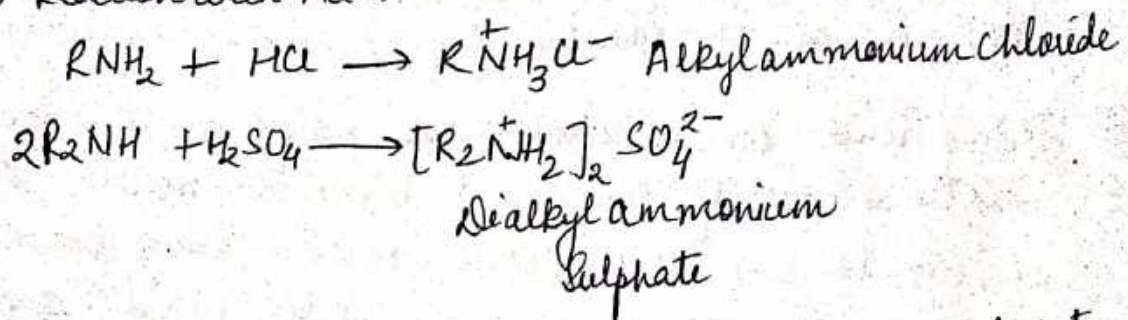 RNH₂ + HCl ⟶ RN⁺H₃Cl⁻ Alkylammonium Chloride
2R₂NH + H₂SO₄ ⟶ [R₂N⁺H₂]₂ SO₄²⁻
Dialkyl ammonium
Sulphate